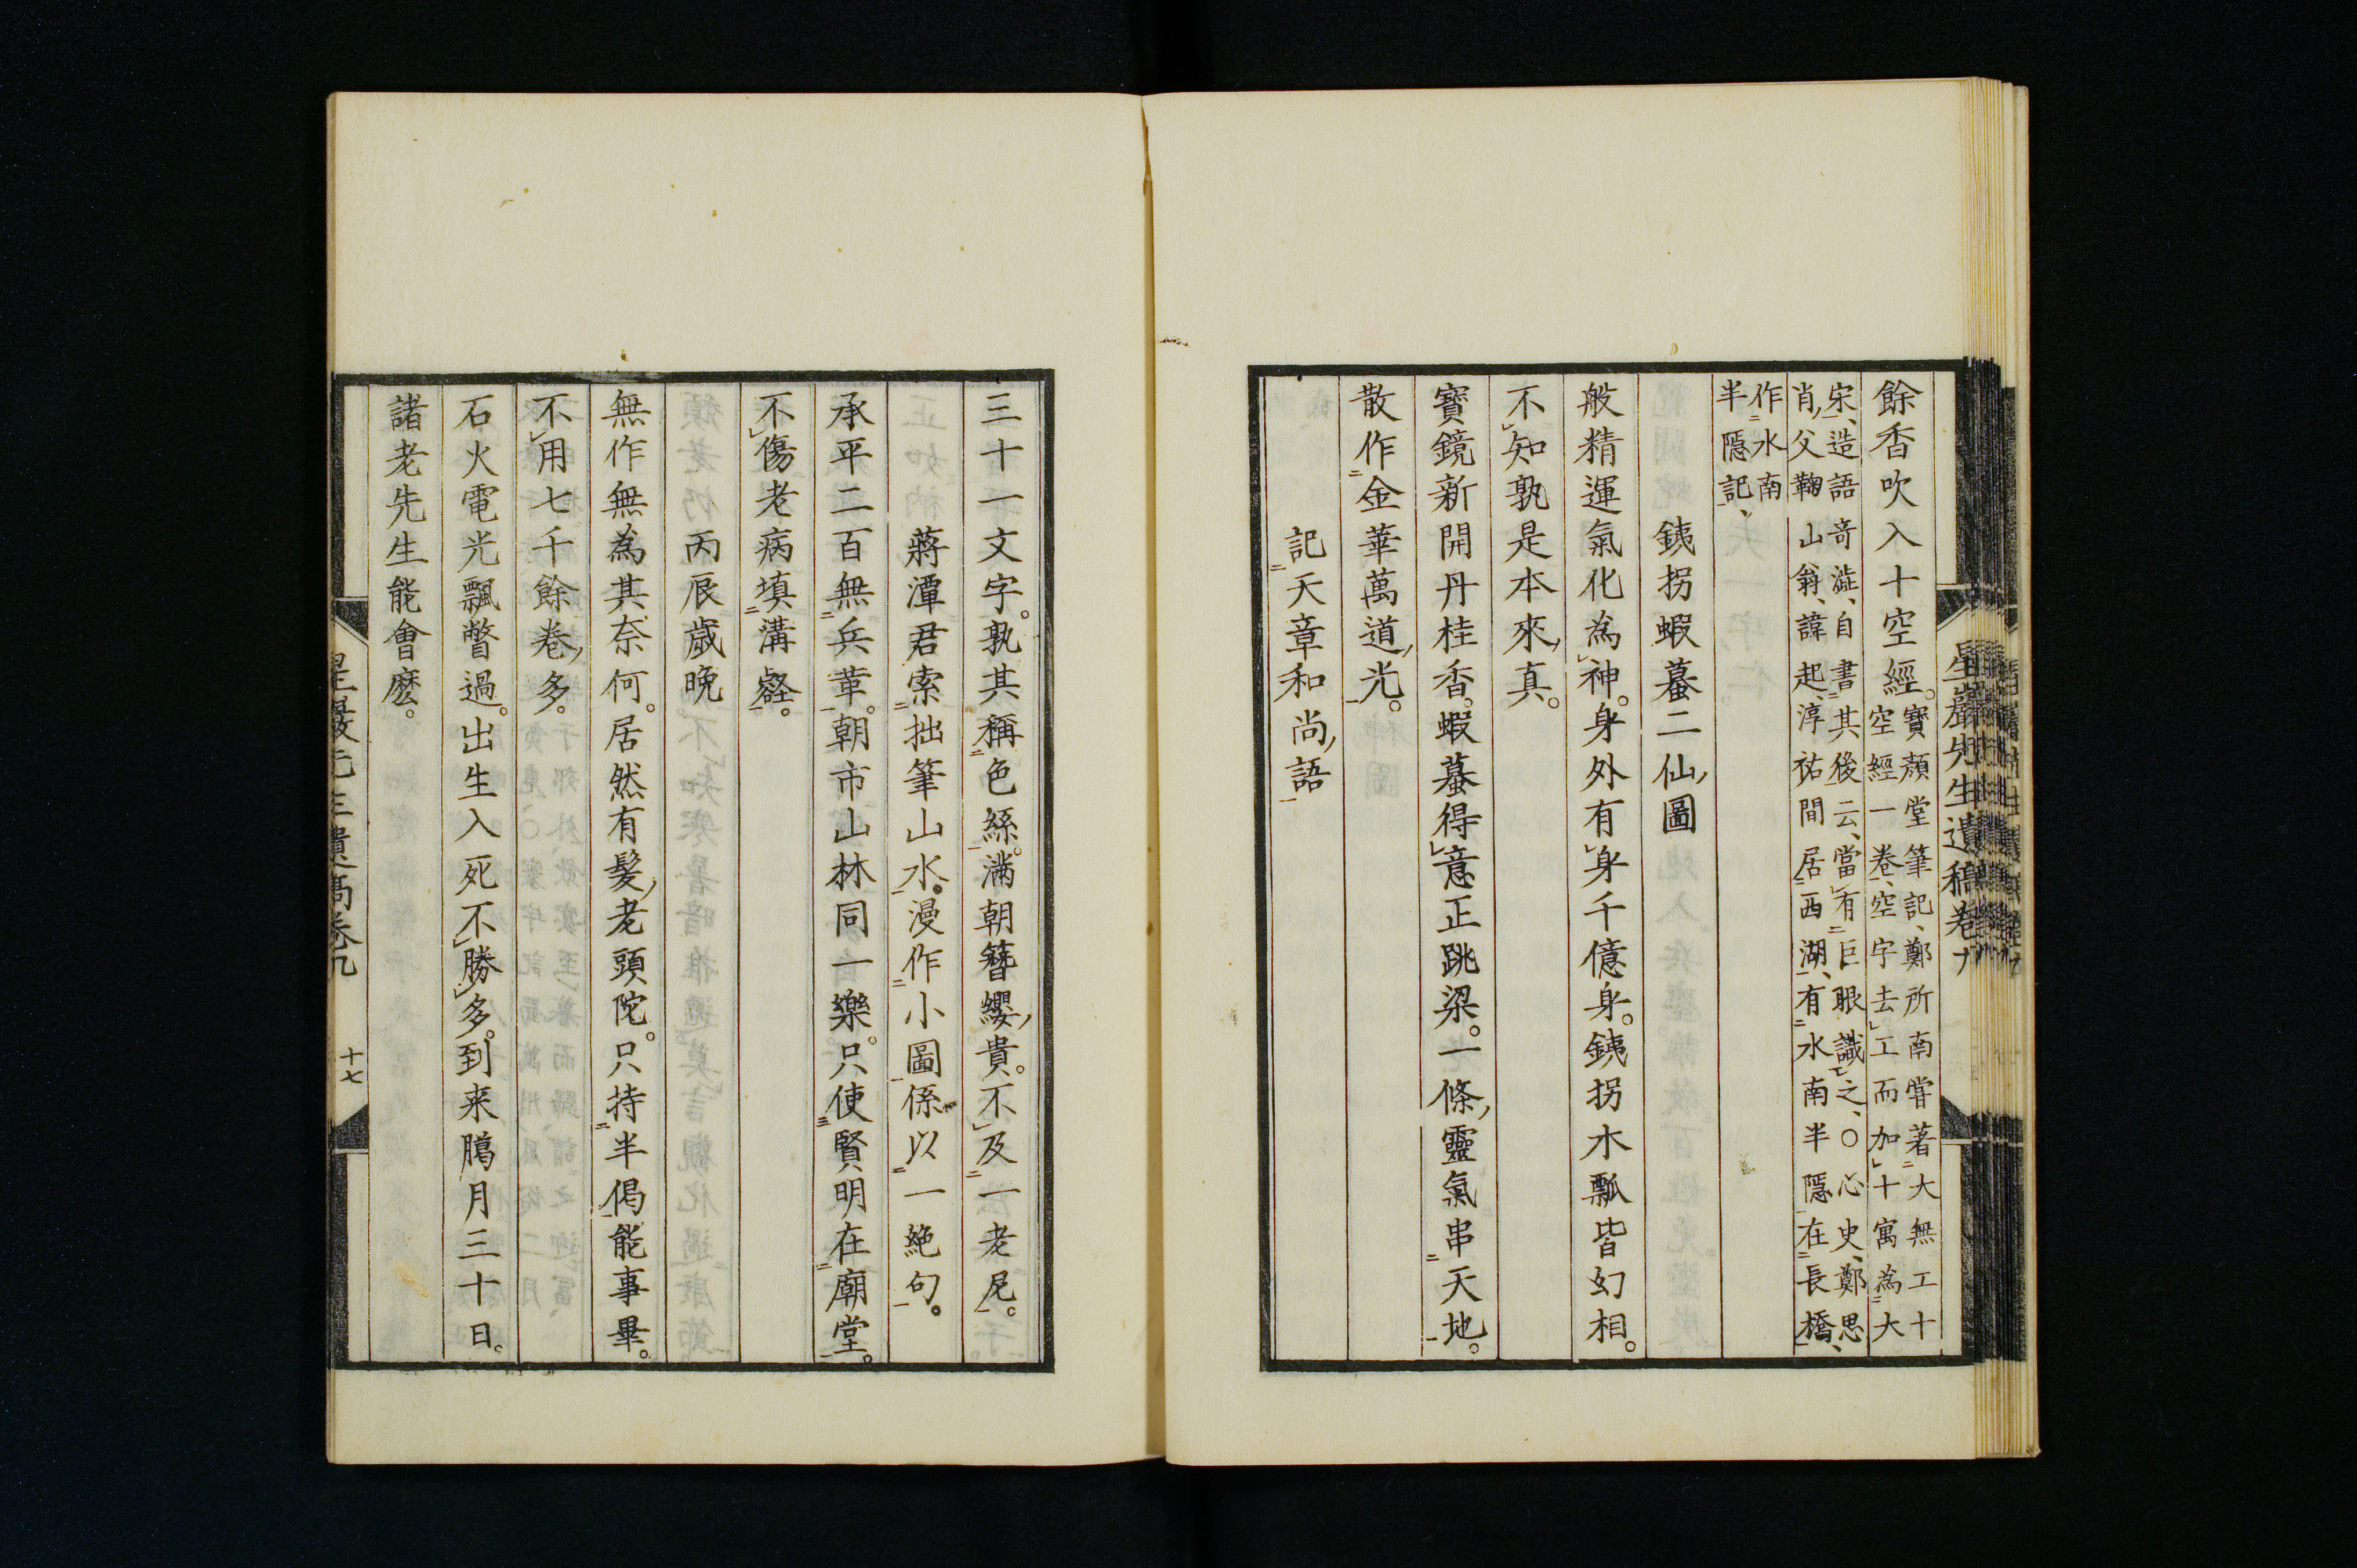 星巖先生遺稿卷九
餘香吹入十空經。
寶顏堂筆記、鄭所南嘗著大無工十
空經一卷、空字去工而加十寓為大
宋、造語奇澁、自書其後云、當有巨眼識之、○心史、鄭思
肖父鞠山翁、諱起、淳祐間居西湖、有水南半隱在長橋、
作水南
半隱記、
銕拐蝦蟇二仙圖
般精運氣化為神。身外有身千億身。銕拐木瓢皆幻相。
不知孰是本來真。
寳鏡新開丹桂香。蝦蟇得意正跳梁。一條靈氣串天地。
散作金華萬道光。
記天章和尚語
三十一文字。孰其稱色絲。滿朝簪纓貴。不及一老尼。
蔣潭君索拙筆山水。漫作小圖係以一絶句。
承平二百無兵革。朝市山林同一樂。只使賢明在廟堂。
不傷老病填溝壑。
丙辰歲晚
無作無為其奈何。居然有髮老頭陀。只持半偈能事畢。
不用七千餘卷多。
石火電光飄瞥過。出生入死不勝多。到来臈月三十日。
諸老先生能會麽。
星巖先生遺稿卷九
十七